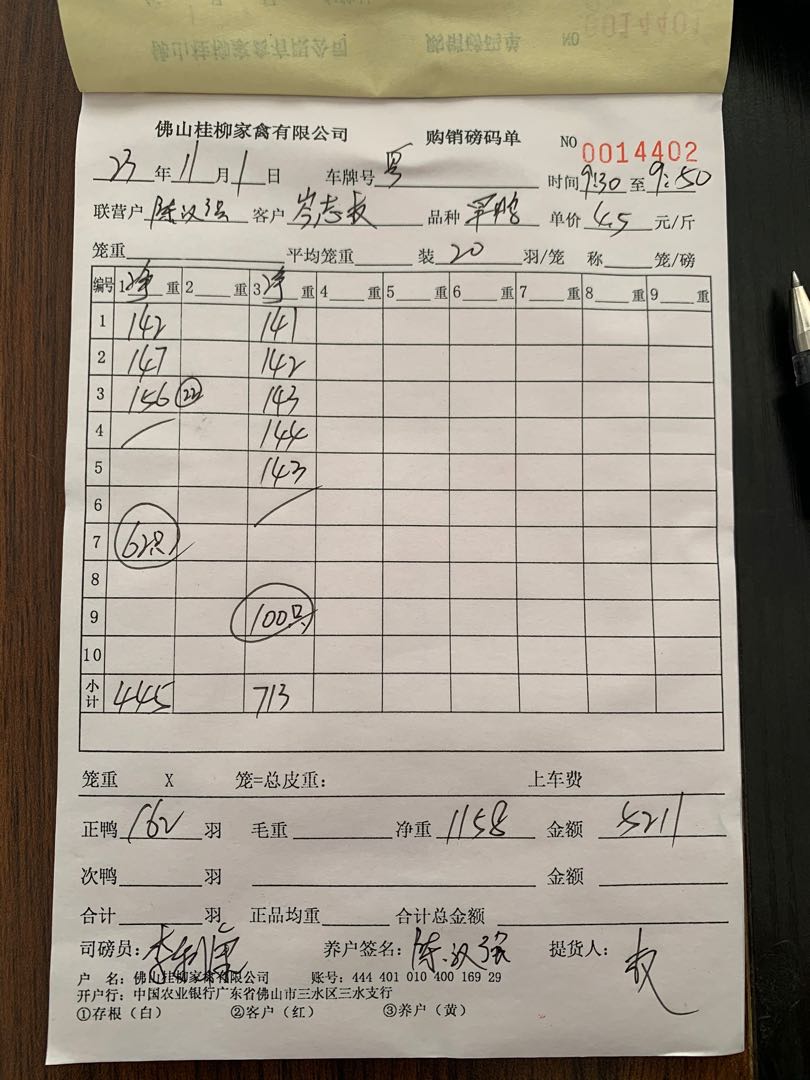 佛山桂柳家禽有限公司 购销磅码单 NO 0014402
23年11月1日 车牌号 粤 时间9:30至9:50
联营户 陈汉强 客户 岑志 品种 单价 4.5 元/斤
笼重 平均笼重 装 20 羽/笼 称 笼/磅
编号 1净重 2重 3净重 4重 5重 6重 7重 8重 9重
1 142 141
2 147 142
3 156 22 143
4 144
5 143
6
7 62只
8
9 100只
10
小计 445 713
笼重 X 笼=总皮重： 上车费
正鸭 162 羽 毛重 净重 1158 金额 5211
次鸭 羽 金额
合计 羽 正品均重 合计总金额
司磅员： 李 养户签名：陈汉强 提货人：
户 名：佛山桂柳家禽有限公司 账号：444 401 010 400 169 29
开户行：中国农业银行广东省佛山市三水区三水支行
①存根（白） ②客户（红） ③养户（黄）